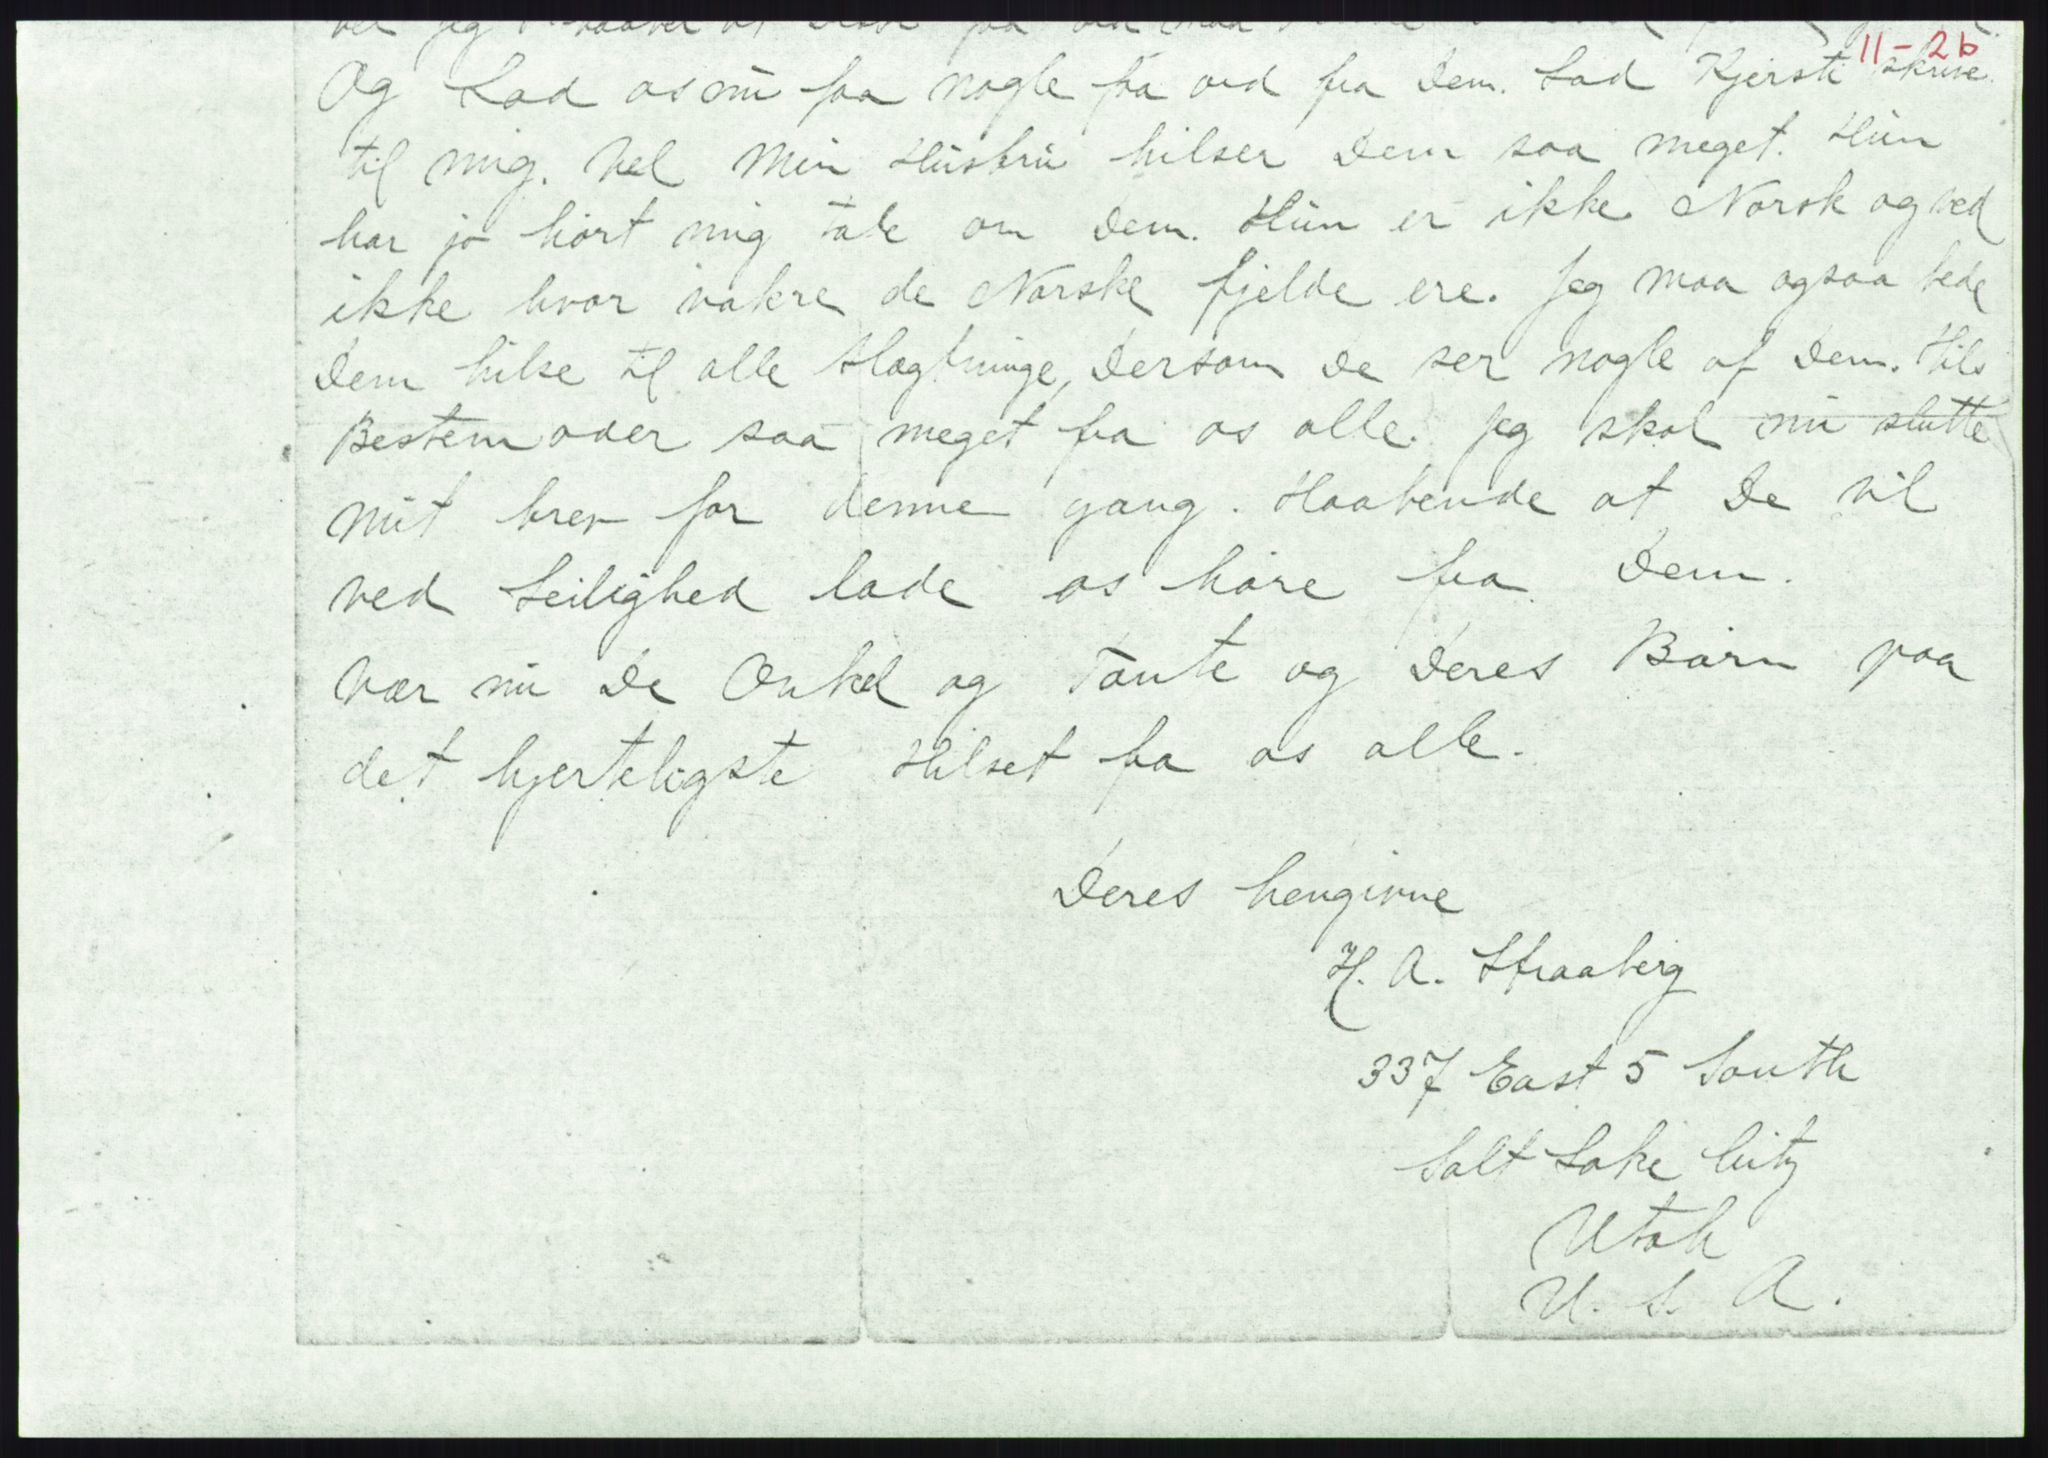 11-26
Og Lad os nu faa nogle faa ord fra Dem. Lad Kjersti skrive
til mig. Vel Min Hustru hilser Dem saa meget. Hun
har jo hørt mig tale om Dem. Hun er ikke Norsk og ved
ikke hvor vakre de Norske fjelde ere. Jeg maa ogsaa bede
Dem hilse til alle Slægtninge, Dersom De ser nogle af Dem. Hils
Bestemoder saa meget fra os alle. Jeg skal nu slutte
mit brev for denne gang. Haabende at De vil
ved Leilighed lade os høre fra Dem.
Vær nu De Onkel og Tante og Deres Børn paa
det hjerteligste Hilset fra os alle.
Deres hengivne
H. A. Straaberg
337 East 5 South
Salt Lake City
Utah
U. S. A.